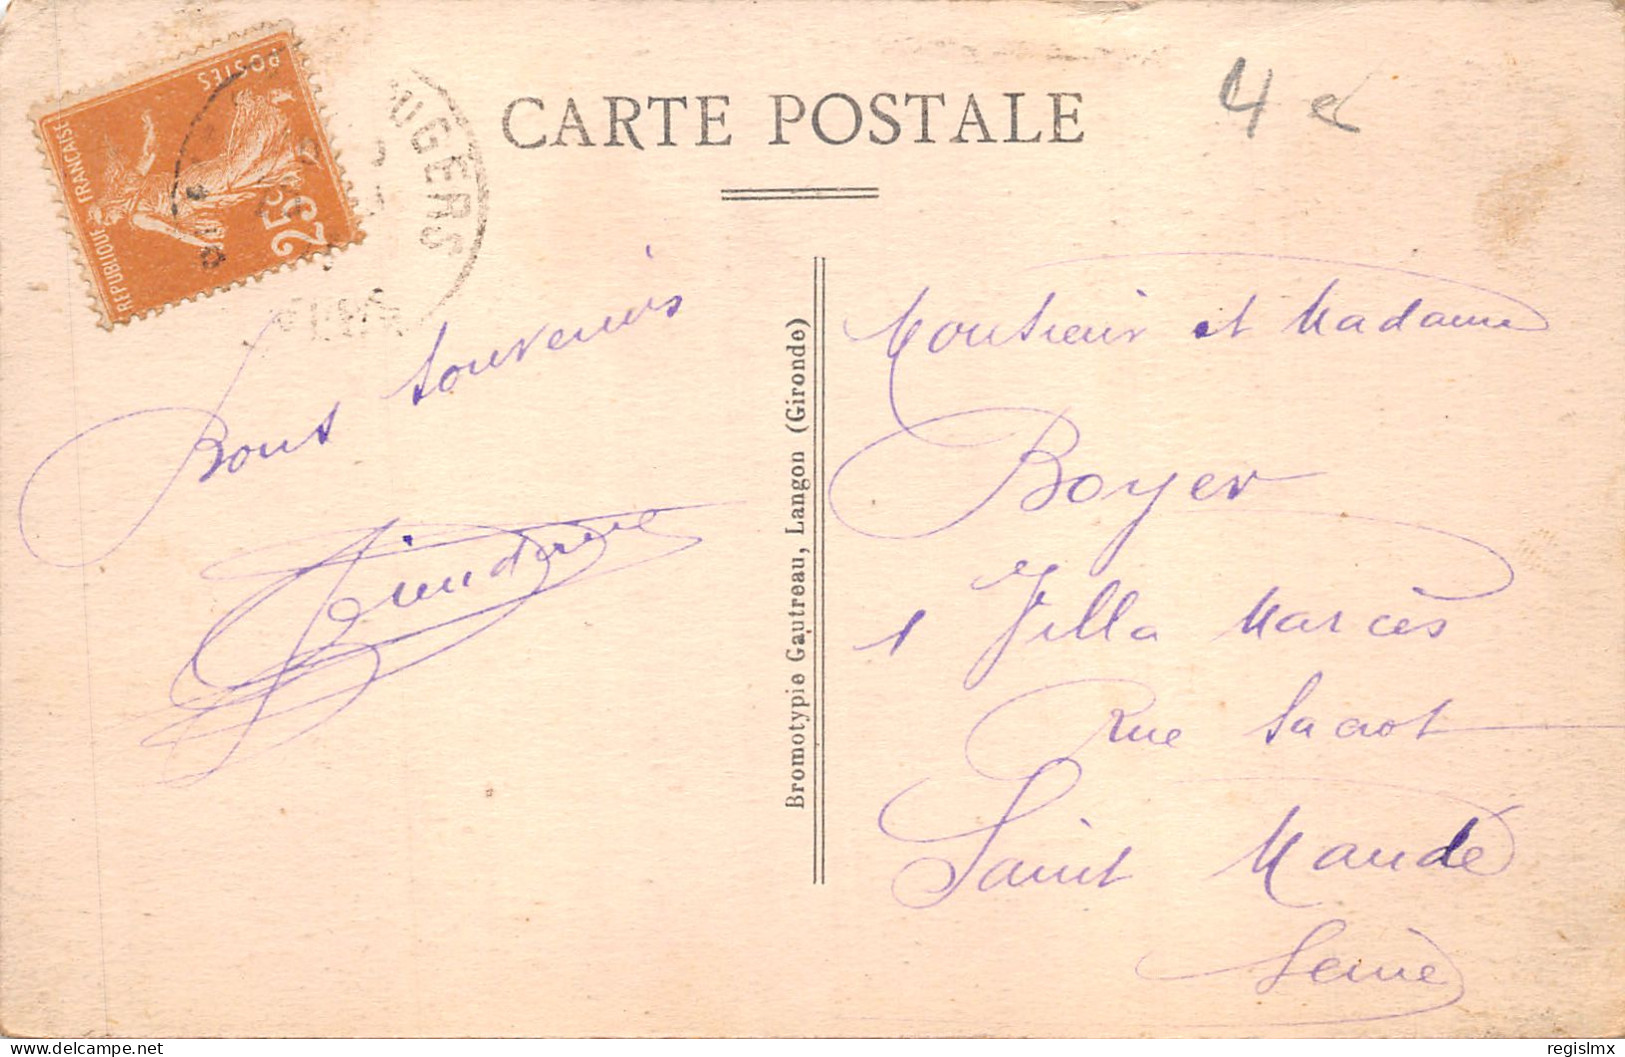 CARTE POSTALE
4 €
POSTES
RÉPUBLIQUE FRANÇAISE
25c
UGERS
Bons souvenirs
Bromotypie Gautreau, Langon (Gironde)
Monsieur et Madame
Boyer
1 Villa Marcès
Rue Sacrot
Saint Mandé
Seine
delcampe.net
regislmx